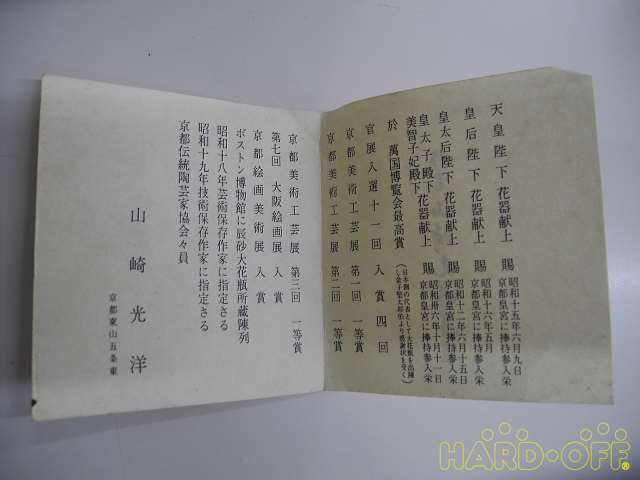 天皇陛下 花器献上 賜 昭和十五年六月九日 京都皇宮に捧持参入栄
皇后陛下 花器献上 賜 昭和十六年五月 京都皇宮に捧持参入栄
皇太后陛下 花器献上 賜 昭和十二年六月十五日 京都皇宮に捧持参入栄
皇太子殿下 美智子妃殿下 花器献上 賜 昭和卅六年十月十一日 京都皇宮に捧持参入栄
於 萬国博覧会最高賞 (日本側の代表として大花瓶を出陳し金子堅太郎伯より感謝状を受く)
官展入選十一回 入賞四回
京都美術工芸展 第一回 一等賞
京都美術工芸展 第二回 一等賞
京都美術工芸展 第三回 一等賞
第七回 大阪絵画展 入賞
京都絵画美術展 入賞
ボストン博物館に辰砂大花瓶所蔵陳列
昭和十八年芸術保存作家に指定さる
昭和十九年技術保存作家に指定さる
京都伝統陶芸家協会々員
山崎光洋
京都東山五条東
HARD-OFF®